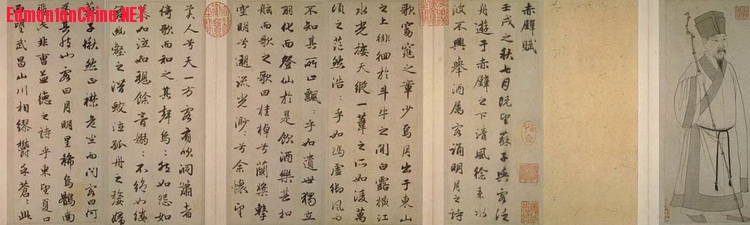 EdmontonChina.NET
赤壁賦
壬戌之秋七月既望蘇子與客泛
舟遊于赤壁之下清風徐來水
波不興舉酒屬客誦明月之詩
歌窈窕之章少焉月出于東山
之上徘徊於斗牛之間白露橫江
水光接天縱一葦之所如凌萬
頃之茫然浩〻乎如馮虛御風而
不知其所止飄〻乎如遺世獨立
羽化而登仙於是飲酒樂甚扣
舷而歌之歌曰桂棹兮蘭槳擊
空明兮遡流光渺〻兮余懷望
美人兮天一方客有吹洞簫者
倚歌而和之其聲烏〻然如怨如
慕如泣如訴餘音嫋〻不絕如縷
舞幽壑之潛蛟泣孤舟之嫠婦
蘇子愀然正襟危坐而問客曰何
為其然也客曰月明星稀烏鵲南
飛此非曹孟德之詩乎東望夏口
西望武昌山川相繆鬱乎蒼〻此